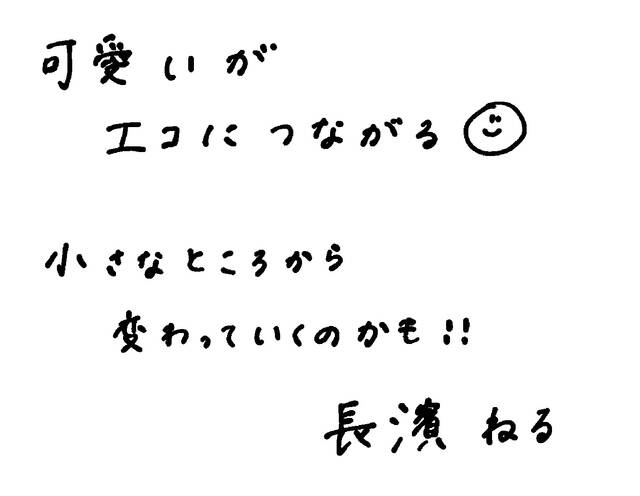 可愛いが
エコにつながる
小さなところから
変わっていくのかも!!
長濱ねる